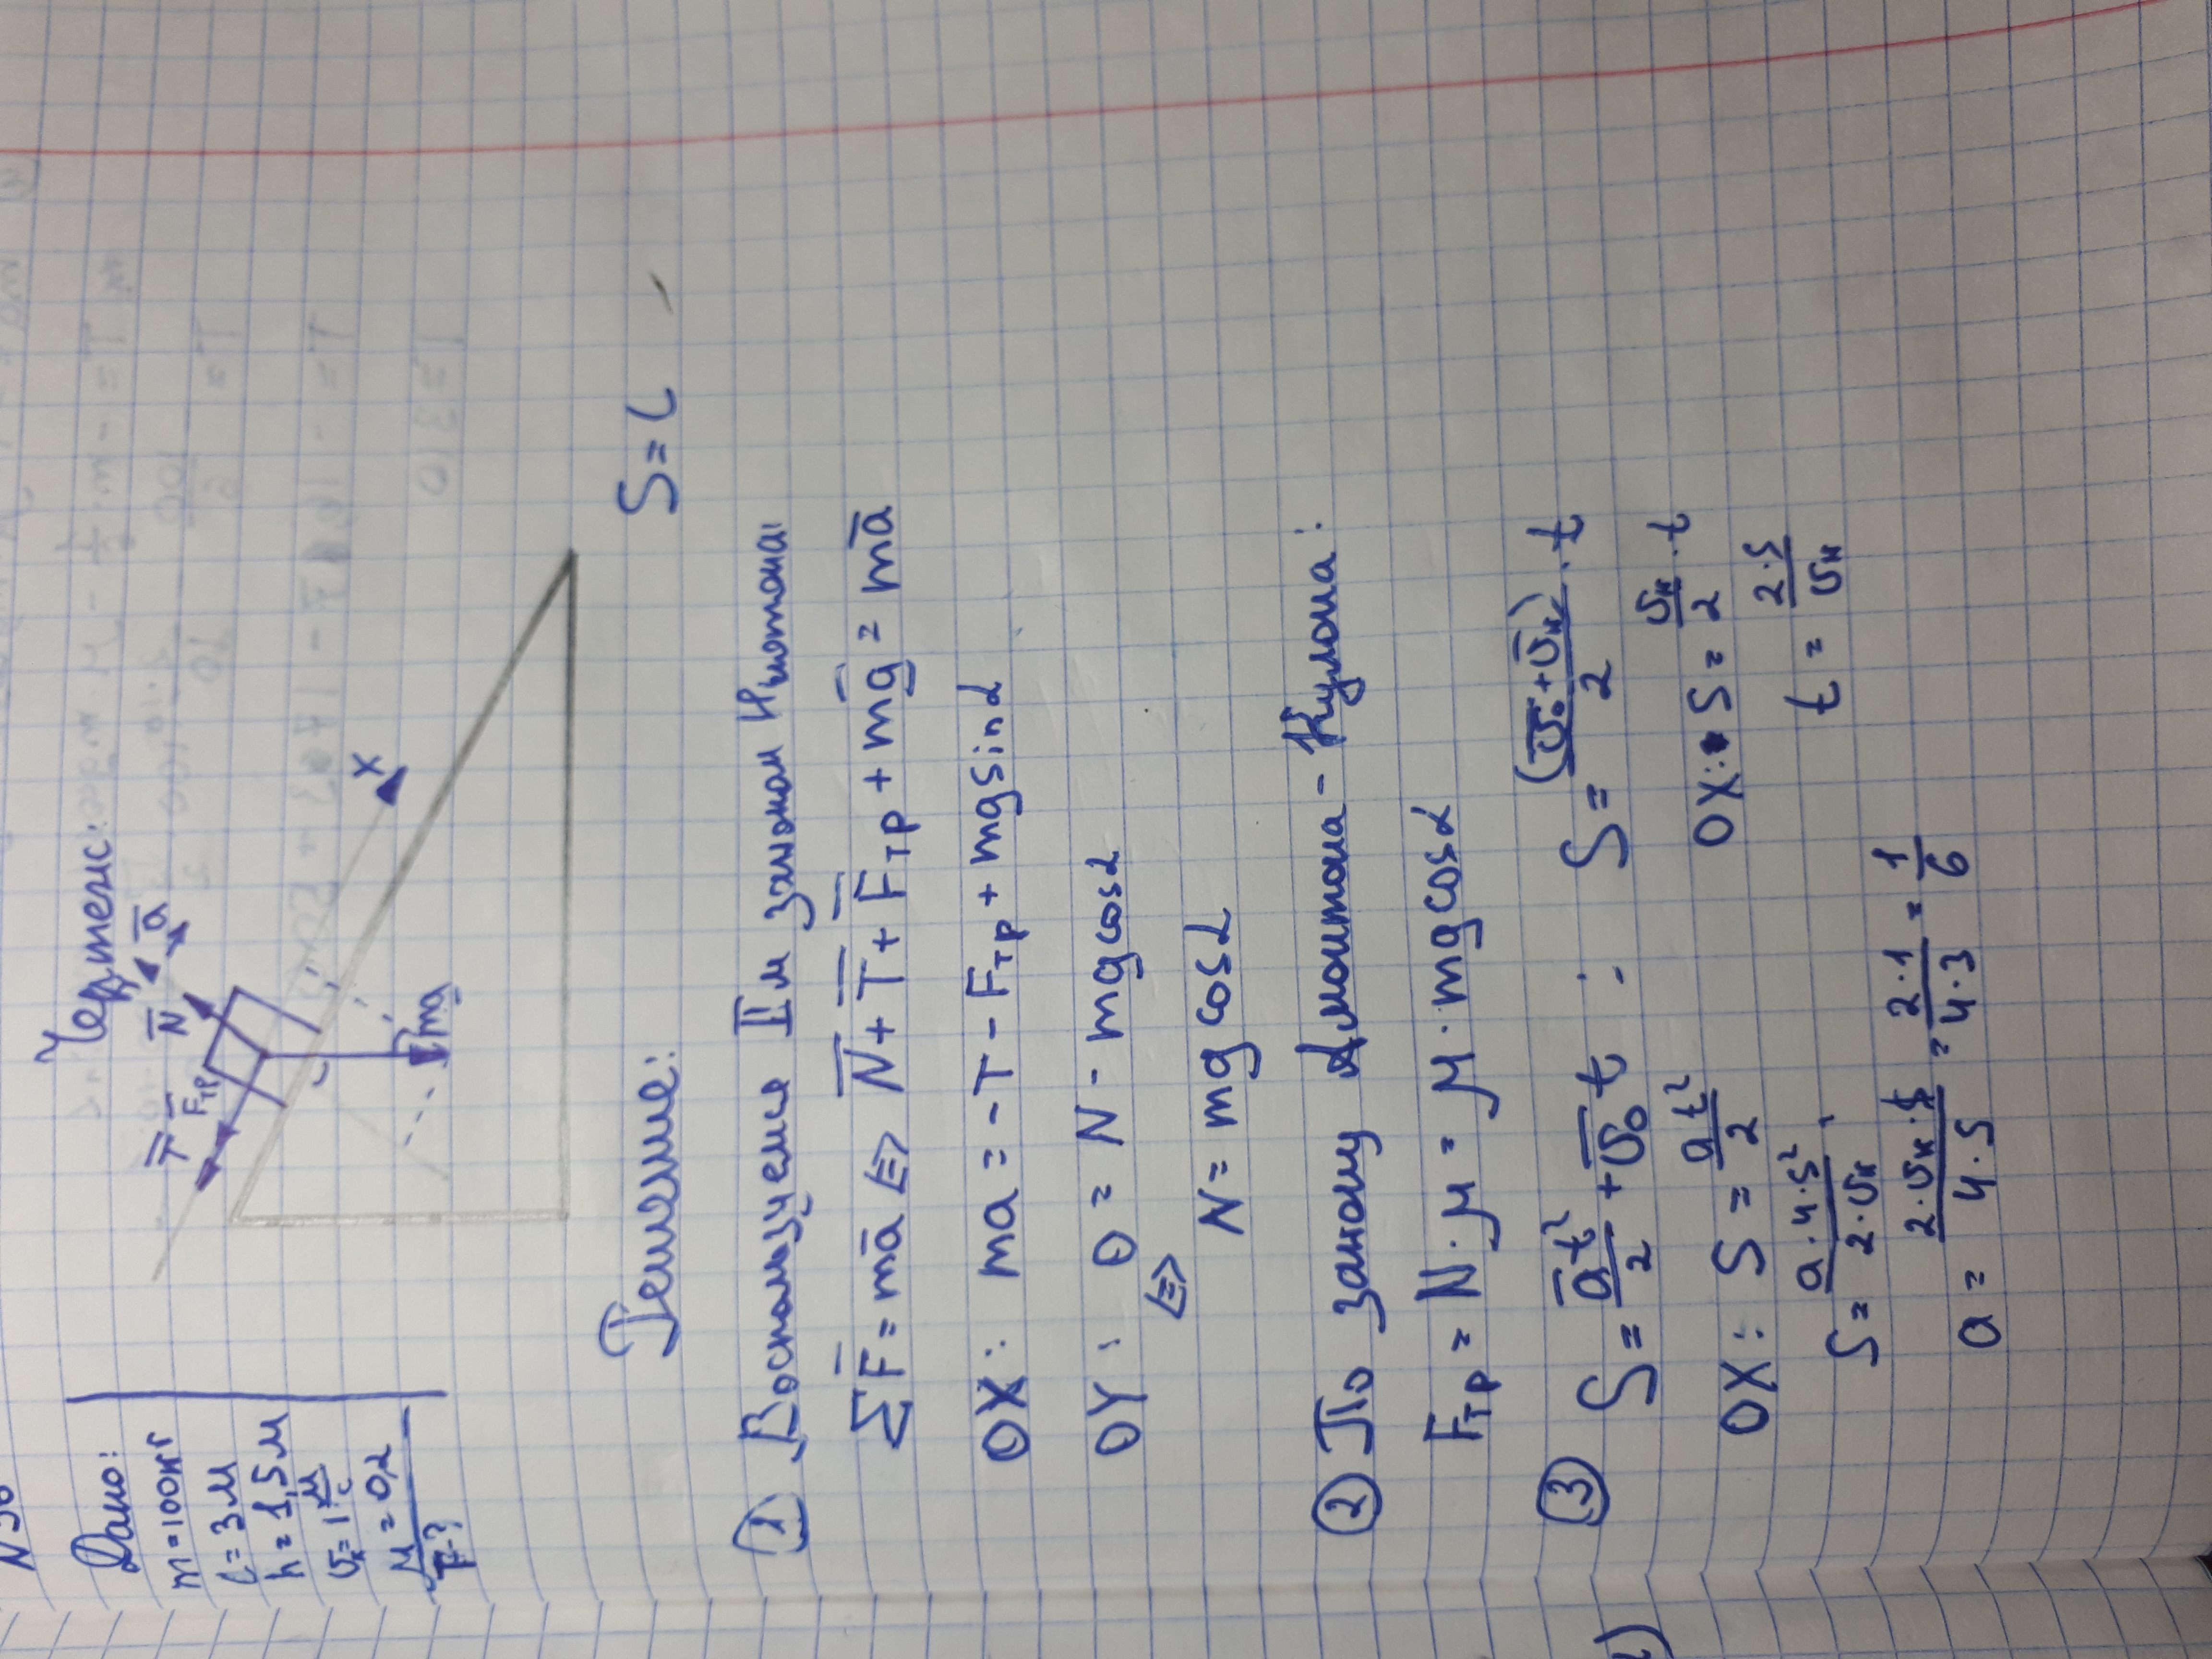 N 56
Дано:
m=100кг
l=3м
h=1,5м
υк=1 м/с
μ=0,2
T-?
Чертеж:
T̅ F̅тр N̅ a̅
X
m̅g
Решение:
S=l
① Воспользуемся IIм законом Ньютона:
∑F̅=ma̅ <=> N̅+T̅+F̅тр+mg̅=ma̅
OX: ma=-T-Fтр+mgsinα
OY: 0=N-mgcosα
<=>
N=mgcosα
② По закону Амонтона-Кулона:
Fтр=N·μ=μ·mgcosα
③ S̅=a̅t²/2+υ̅₀t ; S̅=(υ̅₀+υ̅к)/2·t
OX: S=at²/2 OX: S=υк/2·t
S=a·4·S²/2·υк ; t=2·S/υк
a=2·υк·S/4·S=2·1/4·3=1/6